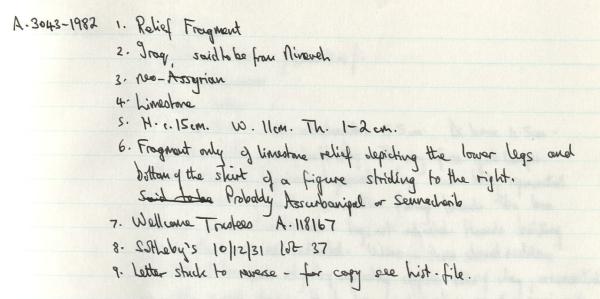 A.3043-1982 1. Relief Fragment
2. Iraq, said to be from Nineveh
3. neo-Assyrian
4. Limestone
5. H. c.15cm. W. 11cm. Th. 1-2cm.
6. Fragment only of limestone relief depicting the lower legs and
bottom of the skirt of a figure striding to the right.
Said to be Probably Assurbanipal or Sennacherib
7. Wellcome Trustees A.118167
8. Sotheby's 10/12/31 lot 37
9. Letter stuck to reverse - for copy see hist. file.